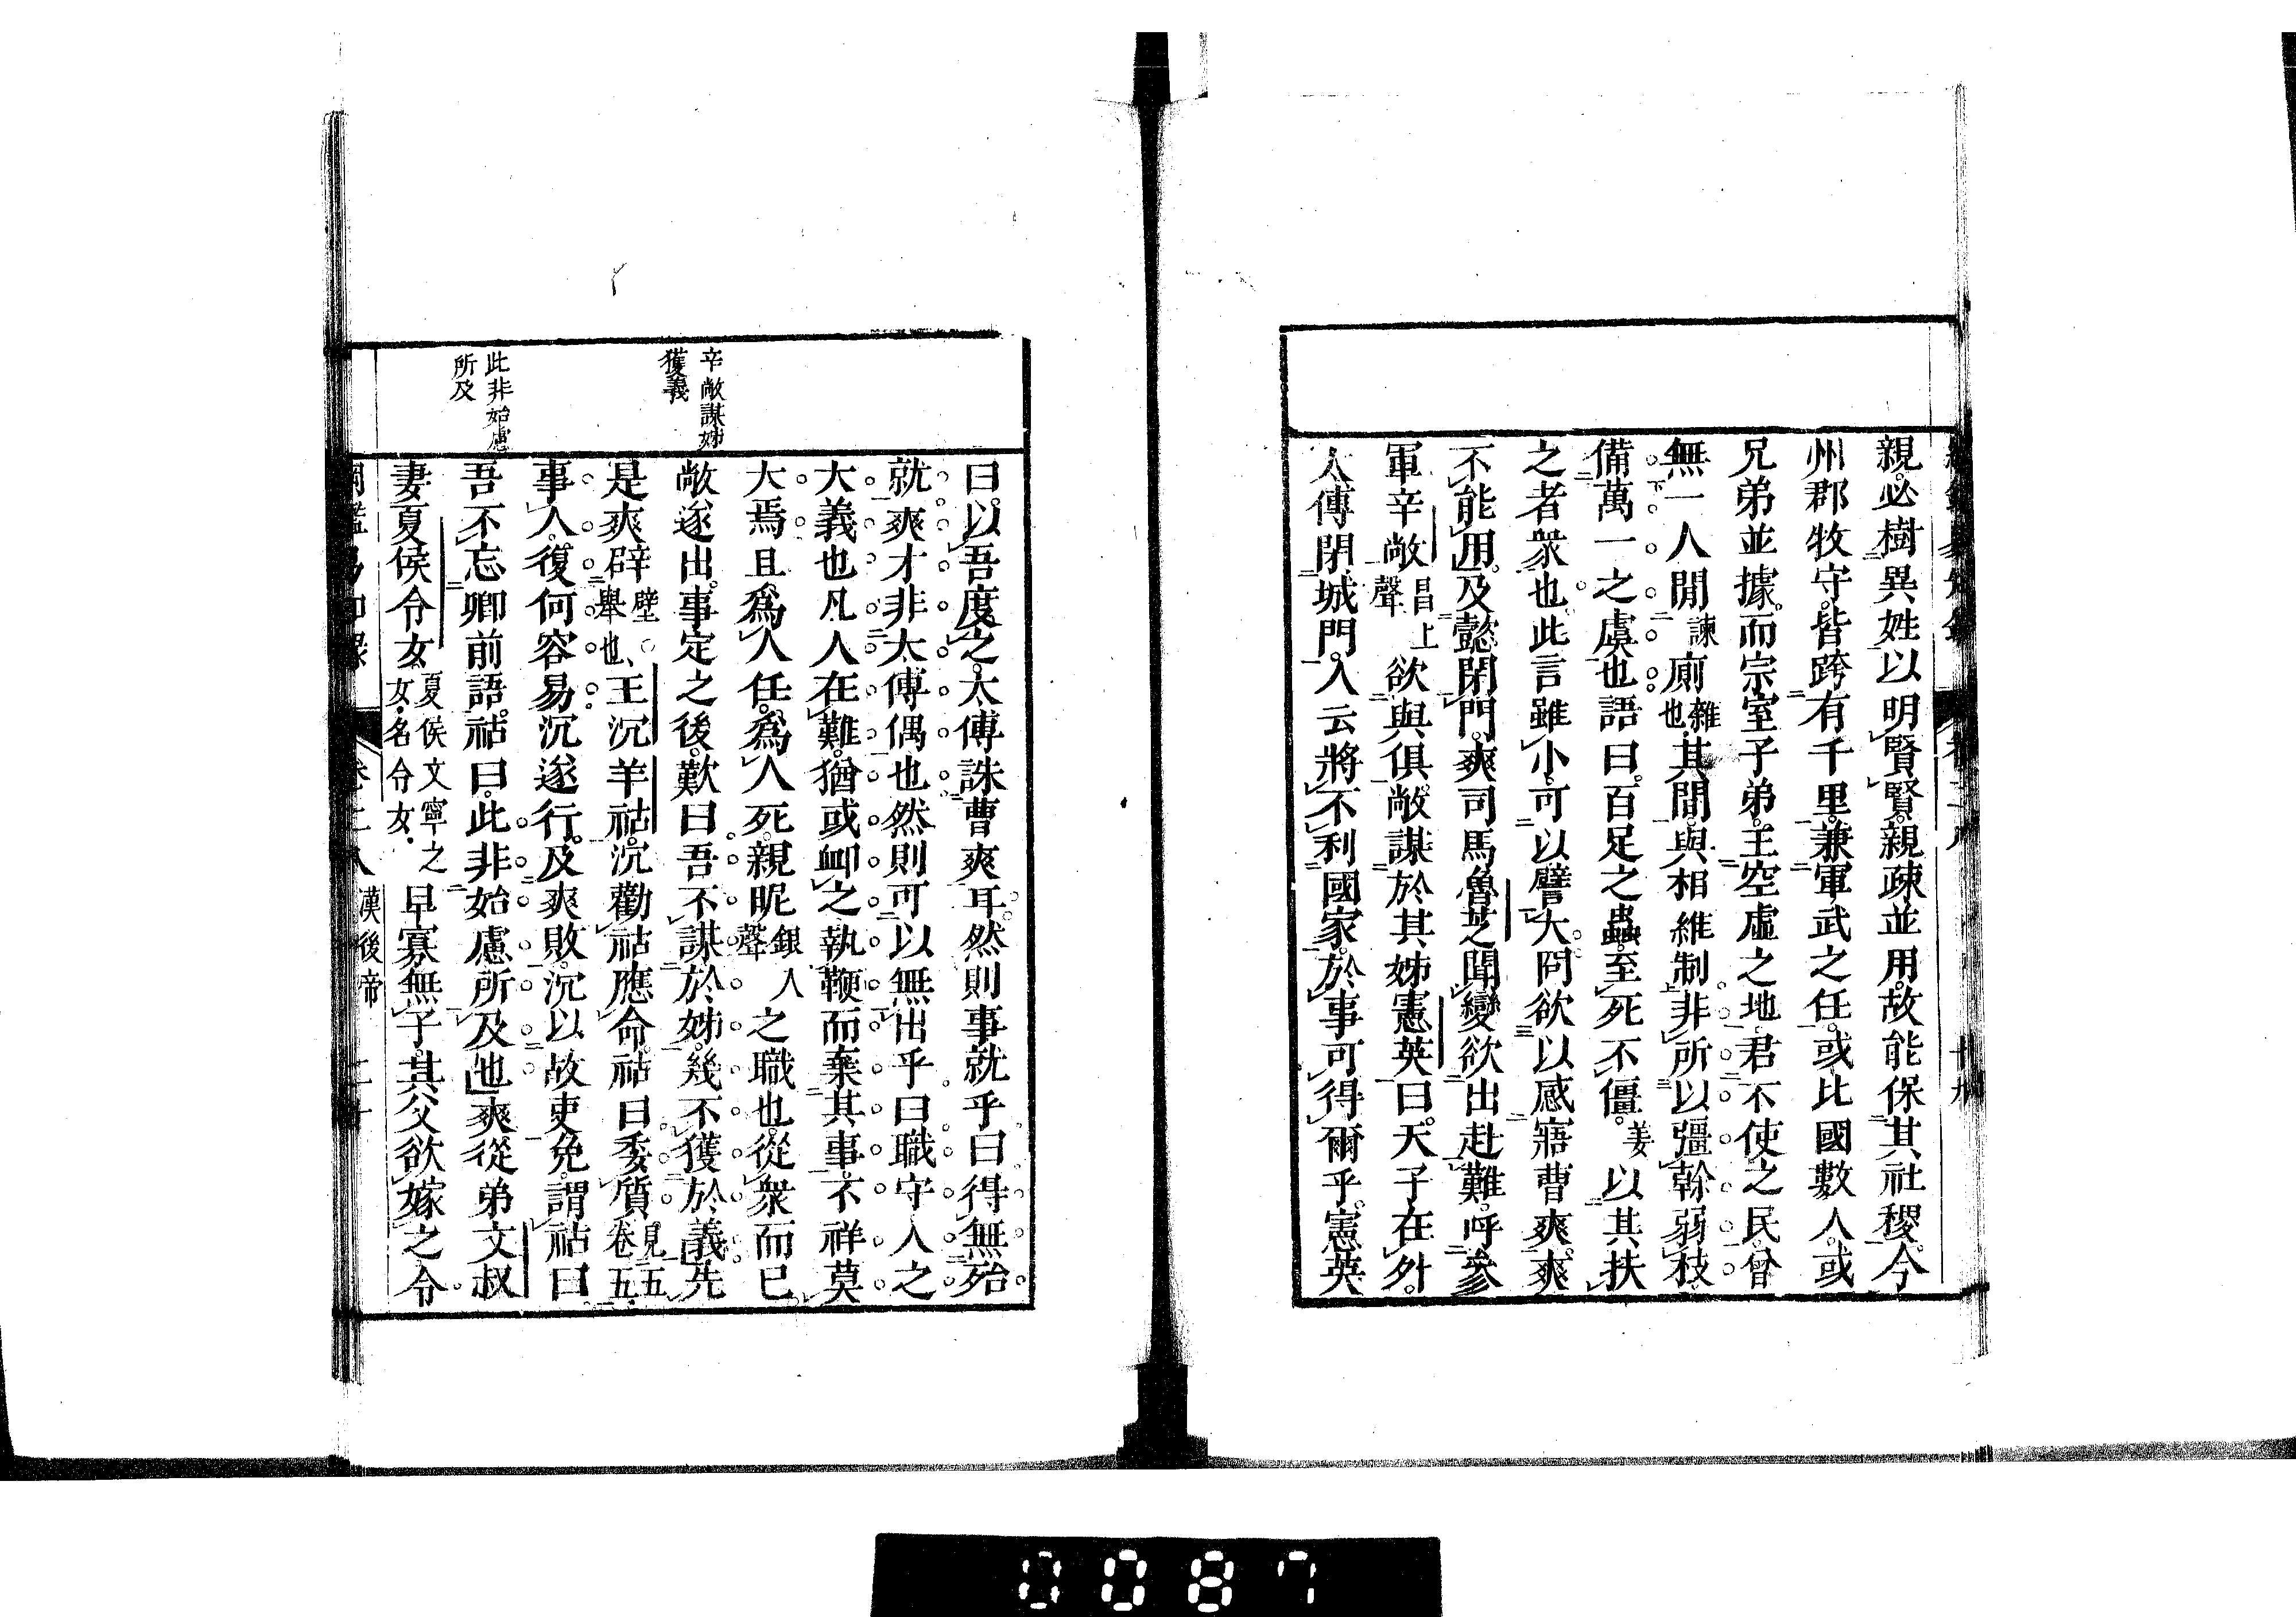 親必樹異姓以明賢賢親疎並用故能保其社稷今
州郡牧守皆跨有千里兼軍武之任或比國數人或
兄弟並據而宗室子弟王空虛之地君不使之民曾
無一人閒諫廁雜也其間與相維制非所以彊幹弱枝
備萬一之虞也語曰百足之蟲至死不僵姜以其扶
之者衆也此言雖小可以譬大冏欲以感寤曹爽爽
不能用及懿閉門爽司馬魯芝聞變欲出赴難呼參
軍辛敞昌上聲欲與俱敞謀於其姊憲英曰天子在外
太傅閉城門人云將不利國家於事可得爾乎憲英
曰以吾度之太傅誅曹爽耳然則事就乎曰得無殆
就爽才非太傅偶也然則可以無出乎曰職守人之
大義也凡人在難猶或卹之執鞭而棄其事不祥莫
大焉且爲人任爲人死親昵銀入聲之職也從衆而已
辛敞謀姊
獲義
敞遂出事定之後歎曰吾不謀於姊幾不獲於義先
是爽辟壁○舉也王沉羊祜沉勸祜應命祜曰委質見五卷五
事人復何容易沉遂行及爽敗沉以故吏免謂祜曰
此非始慮
所及
吾不忘卿前語祜曰此非始慮所及也爽從弟文叔
妻夏侯令女夏侯文寧之女名令女早寡無子其父欲嫁之令
漢後帝
0087